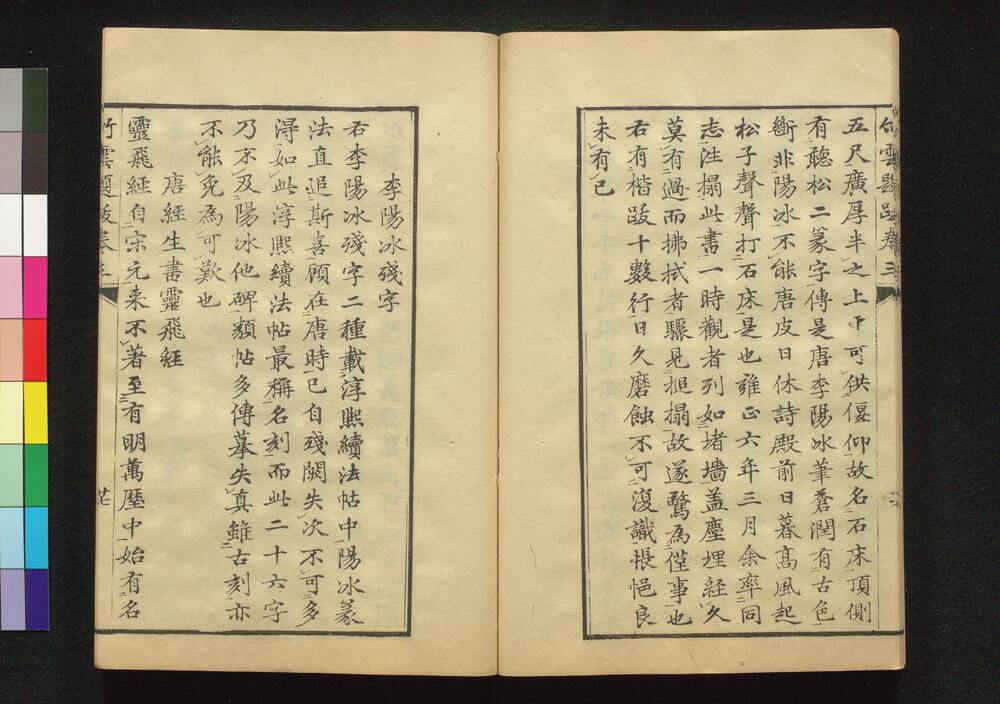 竹雲題跋卷三
五尺廣厚半之上平可供偃仰故名石床頂側
有聽松二篆字傳是唐李陽冰筆蒼潤有古色
斷非陽冰不能唐皮日休詩殿前日暮高風起
松子聲聲打石床是也雍正六年三月余率同
志洼搨此書一時觀者列如堵墻盖塵埋経久
莫有過而拂拭者驟見搥搨故遂驚為僅事也
右有楷跋十數行日久磨蝕不可復識悵悒良
未有已
李陽冰殘字
右李陽冰殘字二種載淳熙續法帖中陽冰篆
法直追斯喜顧在唐時已自殘闕失次不可多
淂如此淳熙續法帖最稱名刻而此二十六字
乃不及陽冰他碑纇帖多傳摹失真雖古刻亦
不能免為可歎也
唐経生書靈飛経
靈飛経自宋元来不著至有明萬歷中始有名
竹雲題跋卷三